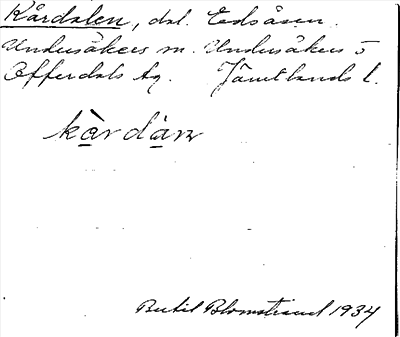 Kårdalen, dal. Edsåsen.
Undersåkers sn. Undersåkers o
Offerdals tg. Jämtlands l.
kàrdàn
Bertil Blomstrand 1934